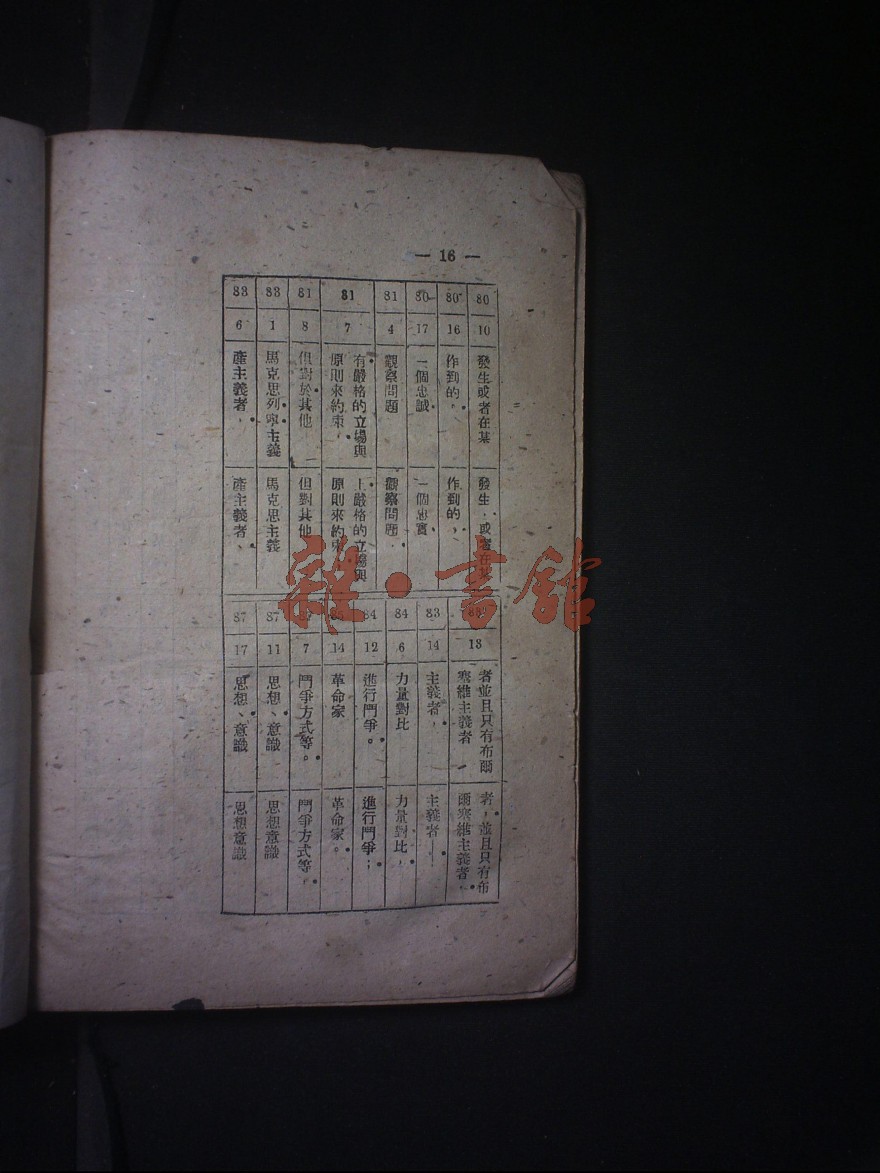 — 16 —
80
10
發生或者在某
發生、或者在某
80
16
作到的。
作到的，
80
17
一個忠誠
一個忠實
81
4
觀察問題
觀察問題，
81
7
有嚴格的立場與
原則來約束，
上嚴格的立場與
原則來約束
81
8
但對於其他
但對其他
83
1
馬克思列寧主義
馬克思主義
83
6
產主義者，
產主義者、
83
13
者並且只有布爾
塞維主義者
者，並且只有布
爾塞維主義者，
83
14
主義者，
主義者——
84
6
力量對比
力量對比，
84
12
進行鬥爭。
進行鬥爭；
14
革命家
革命家。
7
鬥爭方式等。
鬥爭方式等，
87
11
思想、意識
思想意識
87
17
思想、意識
思想意識
雜·書館